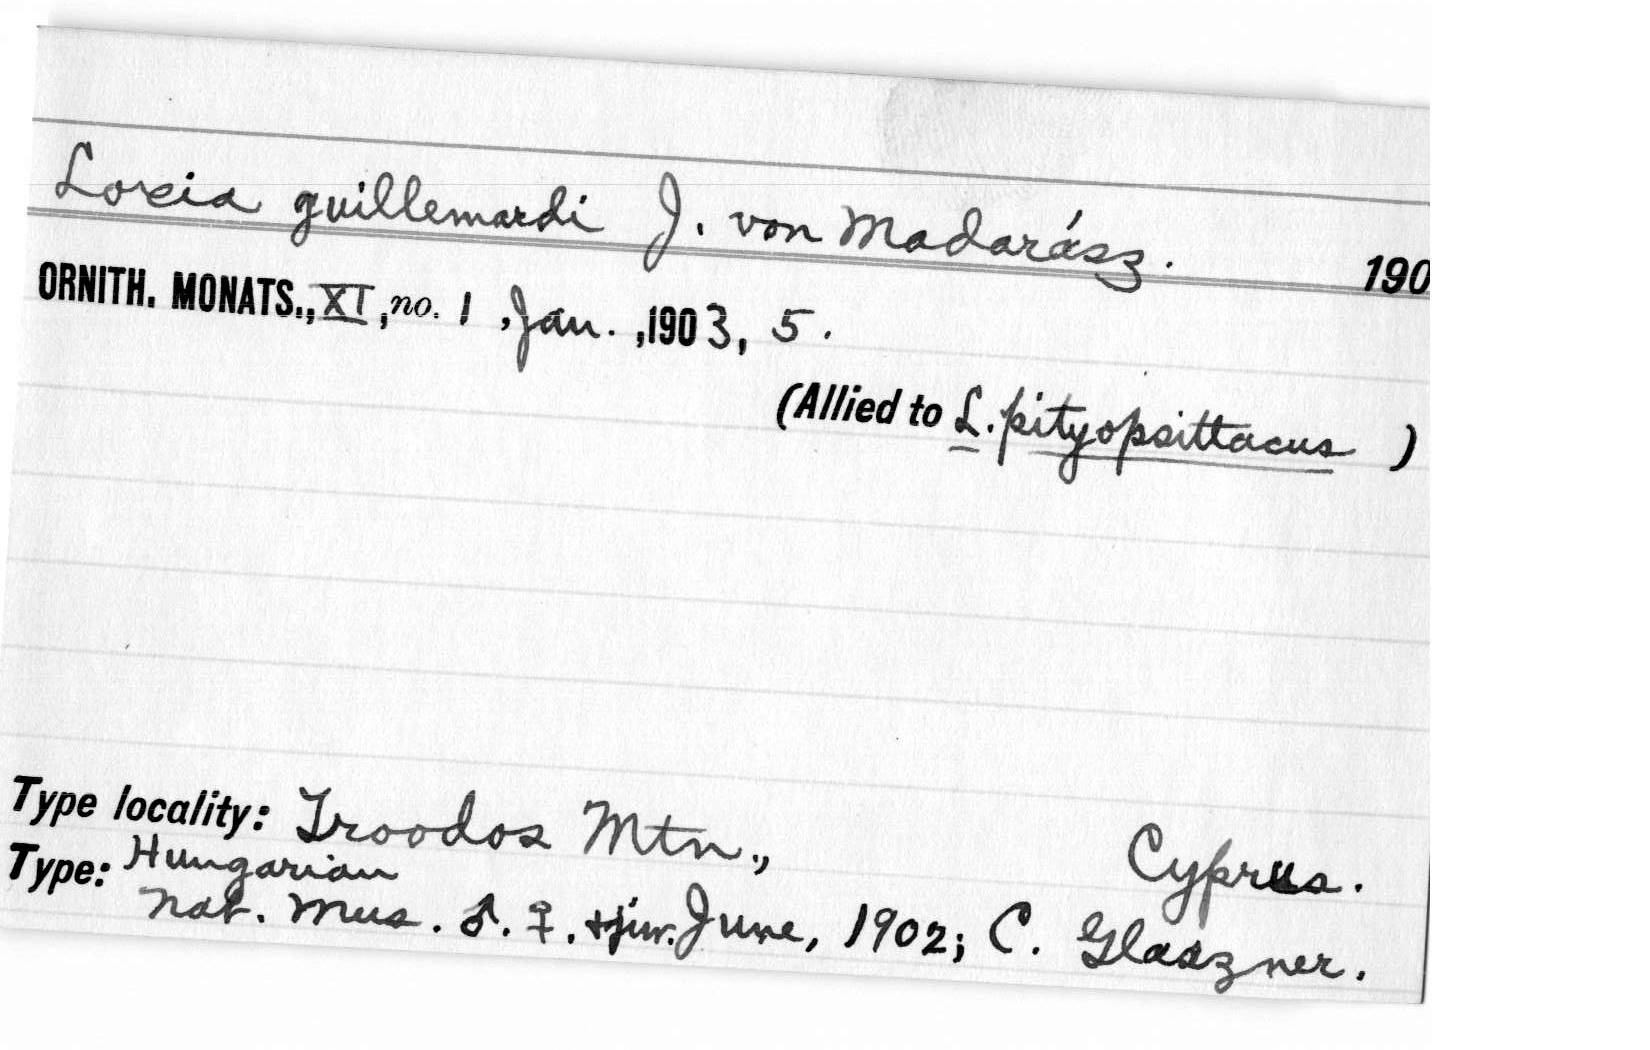 Loxia guillemardi J. von Madarász.
190
ORNITH. MONATS., XI, no. 1, Jan., 1903, 5.
(Allied to L. pityopsittacus )
Type locality: Troodos Mtn., Cyprus.
Type: Hungarian
Nat. Mus. ♂. ♀. + juv. June, 1902; C. Glaszner.